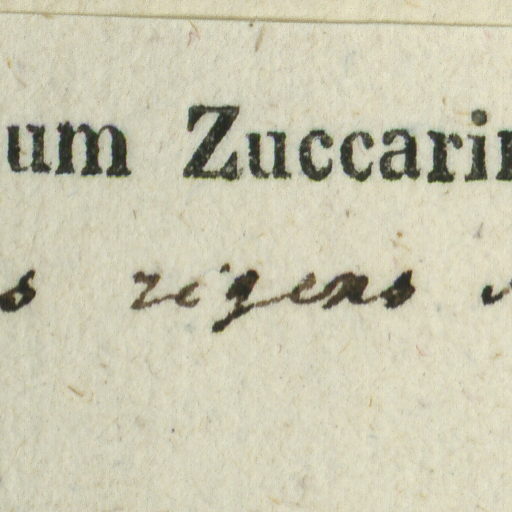 um Zuccarin
s rigens